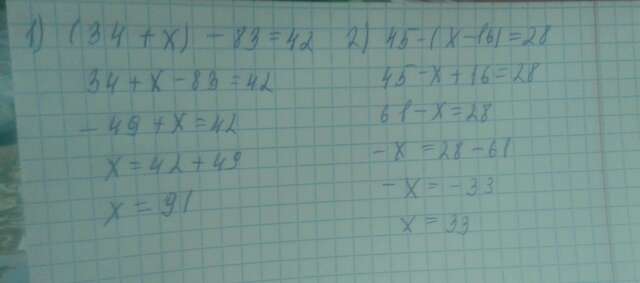 1) (34 + x) - 83 = 42
34 + x - 83 = 42
- 49 + x = 42
x = 42 + 49
x = 91
2) 45 - (x - 16) = 28
45 - x + 16 = 28
61 - x = 28
- x = 28 - 61
- x = - 33
x = 33